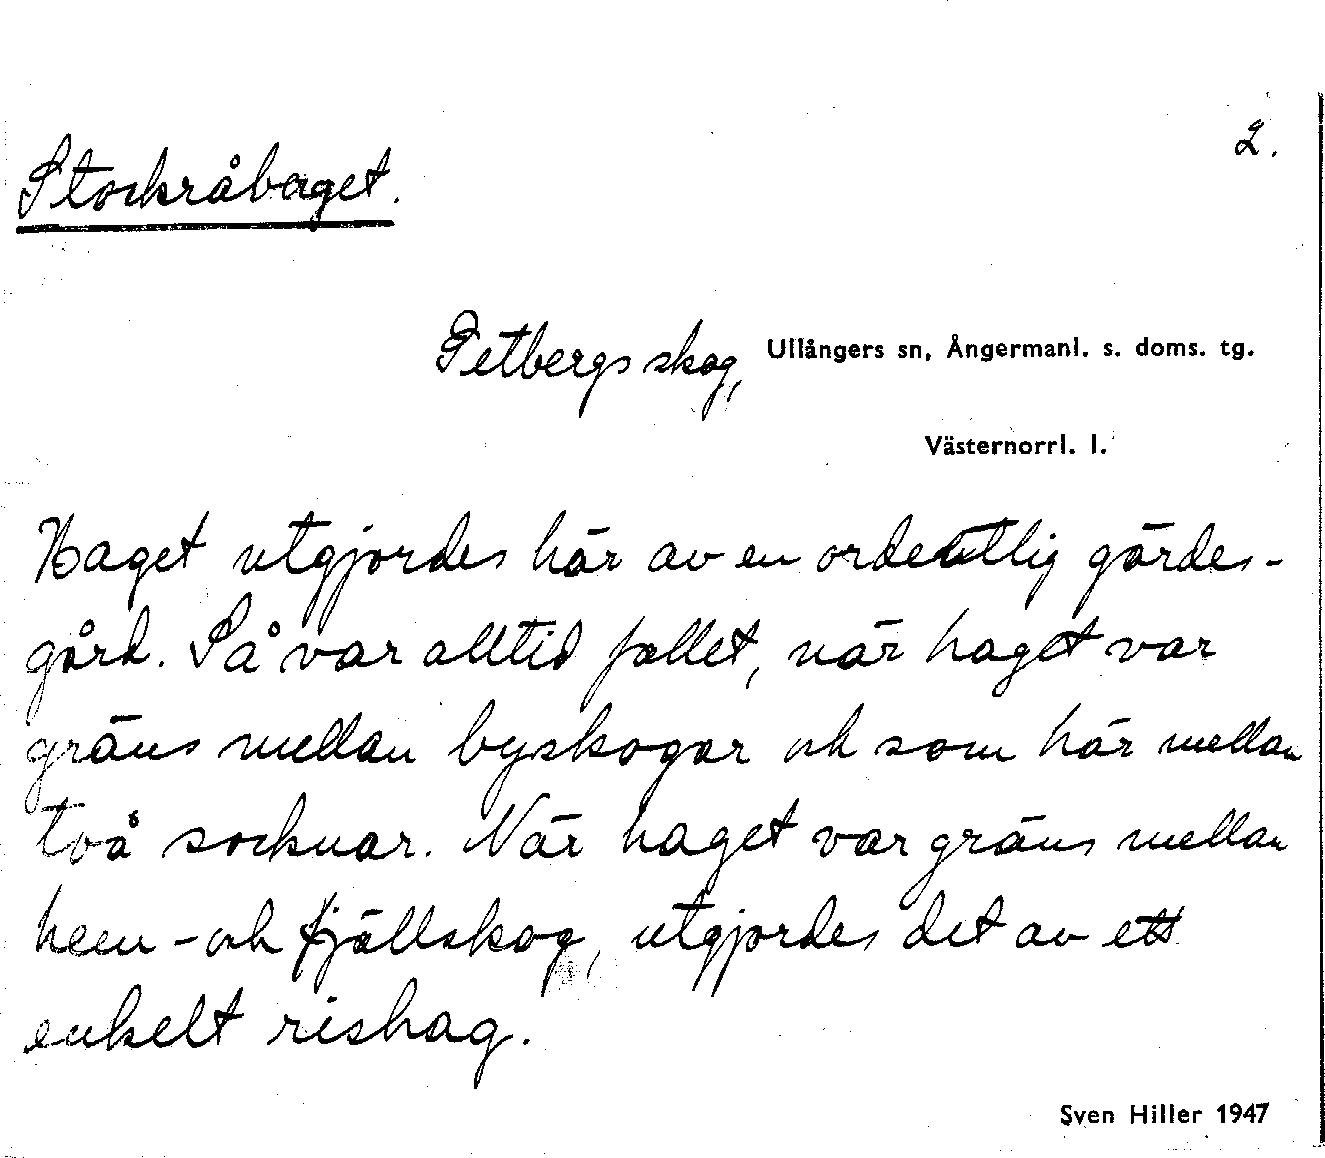 2.
Stockråhaget.
Getbergs skog, Ullångers sn, Ångermanl. s. doms. tg.
Västernorrl. l.
Haget utgjordes här av en ordentlig gärdes-
gård. Så var alltid fallet, när haget var
gräns mellan byskogar och som här mellan
två socknar. När haget var gräns mellan
hem- och fjällskog, utgjordes det av ett
enkelt rishag.
Sven Hiller 1947